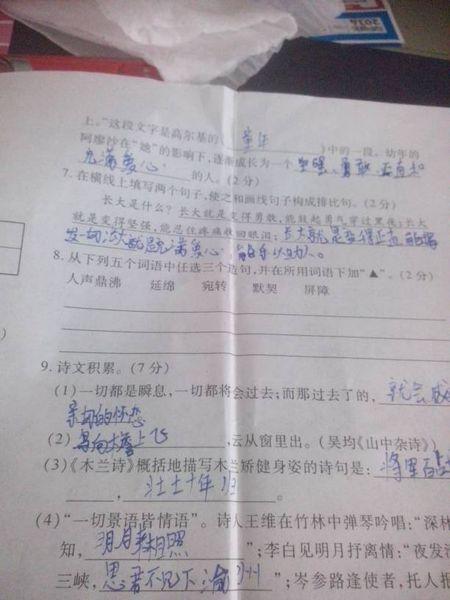 上。"这段文字是高尔基的 童年 》中的一段。幼年的
阿廖沙在"她"的影响下,逐渐成长为一个 坚强、勇敢、正直和
充满爱心 的人。(2分)
7. 在横线上填写两个句子,使之和画线句子构成排比句。(2分)
长大是什么?长大就是变得勇敢,能鼓起勇气穿过黑夜;长大
就是变得坚强,能忍住疼痛收回眼泪;长大就是变得正直
8. 从下列五个词语中任选三个造句,并在所用词语下加"▲"。(2分)
人声鼎沸 延绵 宛转 默契 屏障
9. 诗文积累。(7分)
(1)一切都是瞬息,一切都将会过去;而那过去了的, 就会成
亲切的怀恋
(2) 鸟向 上飞 ,云从窗里出。(吴均《山中杂诗》)
(3)《木兰诗》概括地描写木兰矫健身姿的诗句是: 将军百
, 壮士十年归 。
(4)"一切景语皆情语"。诗人王维在竹林中弹琴吟唱:"深林
知, 明月来相照 ";李白见明月抒离情:"夜发清
三峡, 思君不见下渝州 ";岑参路逢使者,托人报